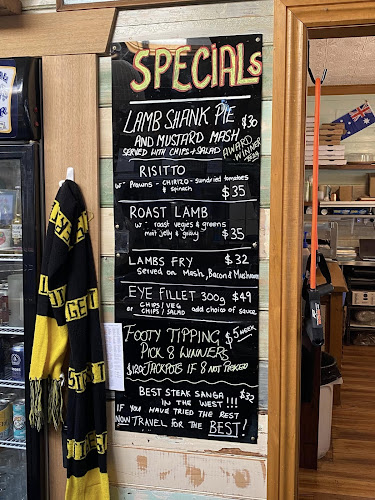 SPECIALS
LAMB SHANK PIE $30
AND MUSTARD MASH
SERVED WITH CHIPS + SALAD
AWARD
WINNER
RISITTO
w/ Prawns - CHIRIZO - sundried tomatoes
& spinach $35
ROAST LAMB
w roast vegies & greens
mint jelly & gravy $35
LAMBS FRY $32
Served on Mash, Bacon & Mushroom
EYE FILLET 300g $49
or CHIPS/VEG
CHIPS / SALAD add choice of sauce
FOOTY TIPPING $5 WEEK
PICK 8 WINNERS
JACKPOTS IF 8 NOT PICKED
BEST STEAK SANGA $32
IN THE WEST !!!
IF YOU HAVE TRIED THE REST
NOW TRAVEL FOR THE BEST!